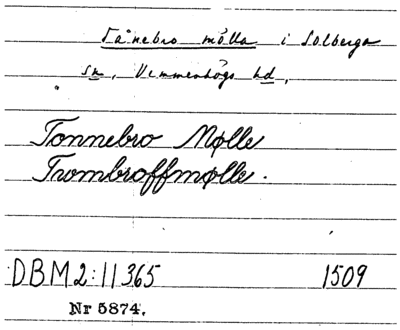 Tånebro mölla i Solberga
sn, Vemmenhögs hd.
Tonnebro Mølle
Trombroffmølle.
DBM2:11365 1509
Nr 5874.